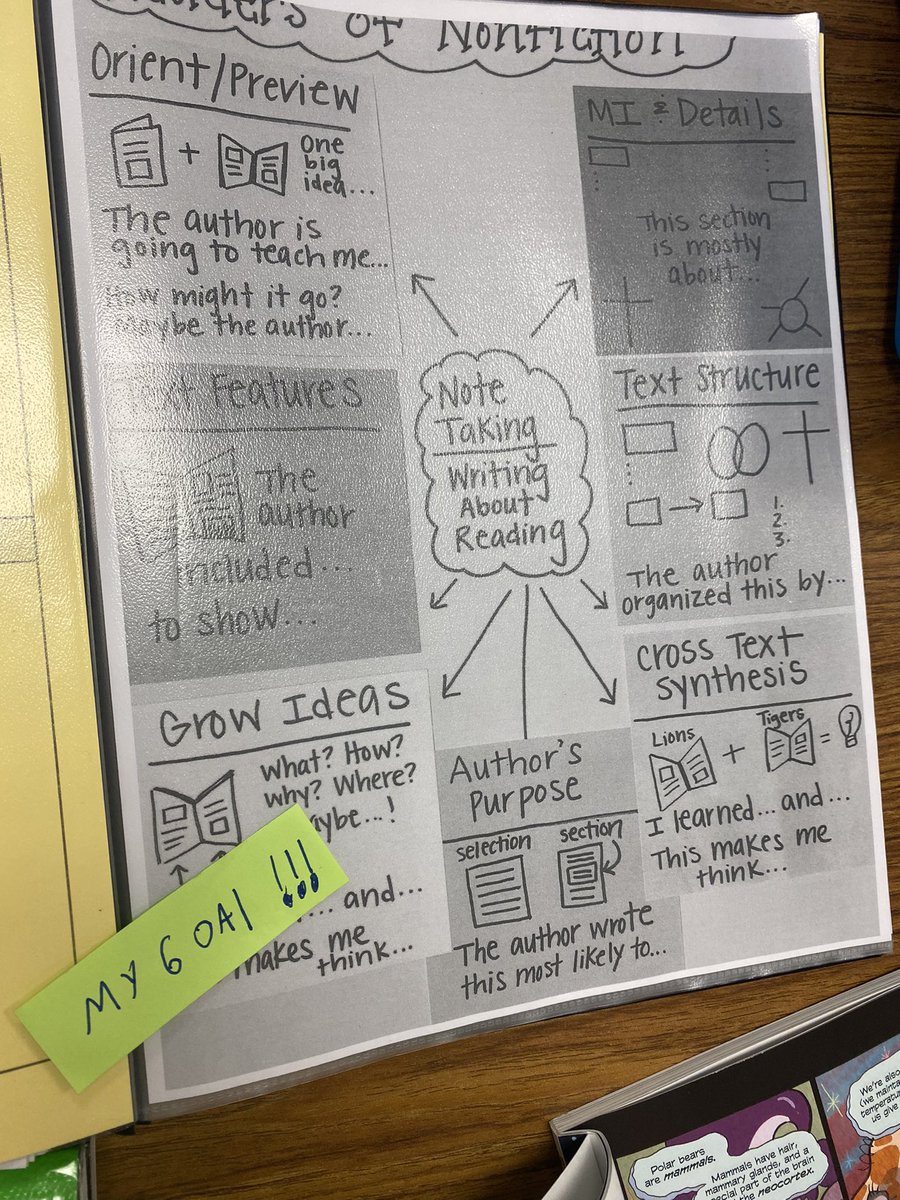 of Nonfiction
Orient/Preview
One
big
idea...
The author is
going to teach me...
How might it go?
Maybe the author...
MI & Details
This section
is mostly
about...
Text Features
The
author
included...
to show...
Note
Taking
Writing
About
Reading
Text Structure
1.
2.
3.
The author
organized this by...
Grow Ideas
What? How?
Why? Where?
aybe...!
... and...
makes me
think...
MY GOAl !!!
Author's
Purpose
selection
section
The author wrote
this most likely to...
Cross Text
Synthesis
Lions
Tigers
+
=
I learned... and...
This makes me
think...
Polar bears
are mammals.
Mammals have hair,
mammary glands, and a
special part of the brain
the neocortex.
We're also
(we mainta
temperatu
us give